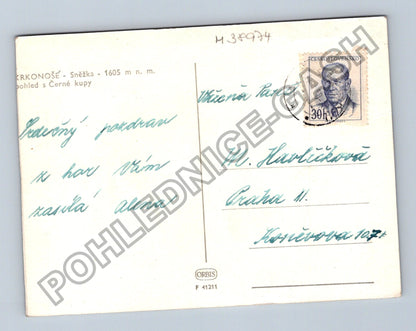 M 38974
KRKONOŠE - Sněžka - 1605 m n. m.
pohled s Černé kupy
Srdečný pozdrav
z hor Vám
zasílá Alena
ČESKOSLOVENSKO
30h
Vážená Paní
Ml. Havlíčková
Praha 11.
Koněvova
ORBIS
P 41311
POHLEDNICE-GASH